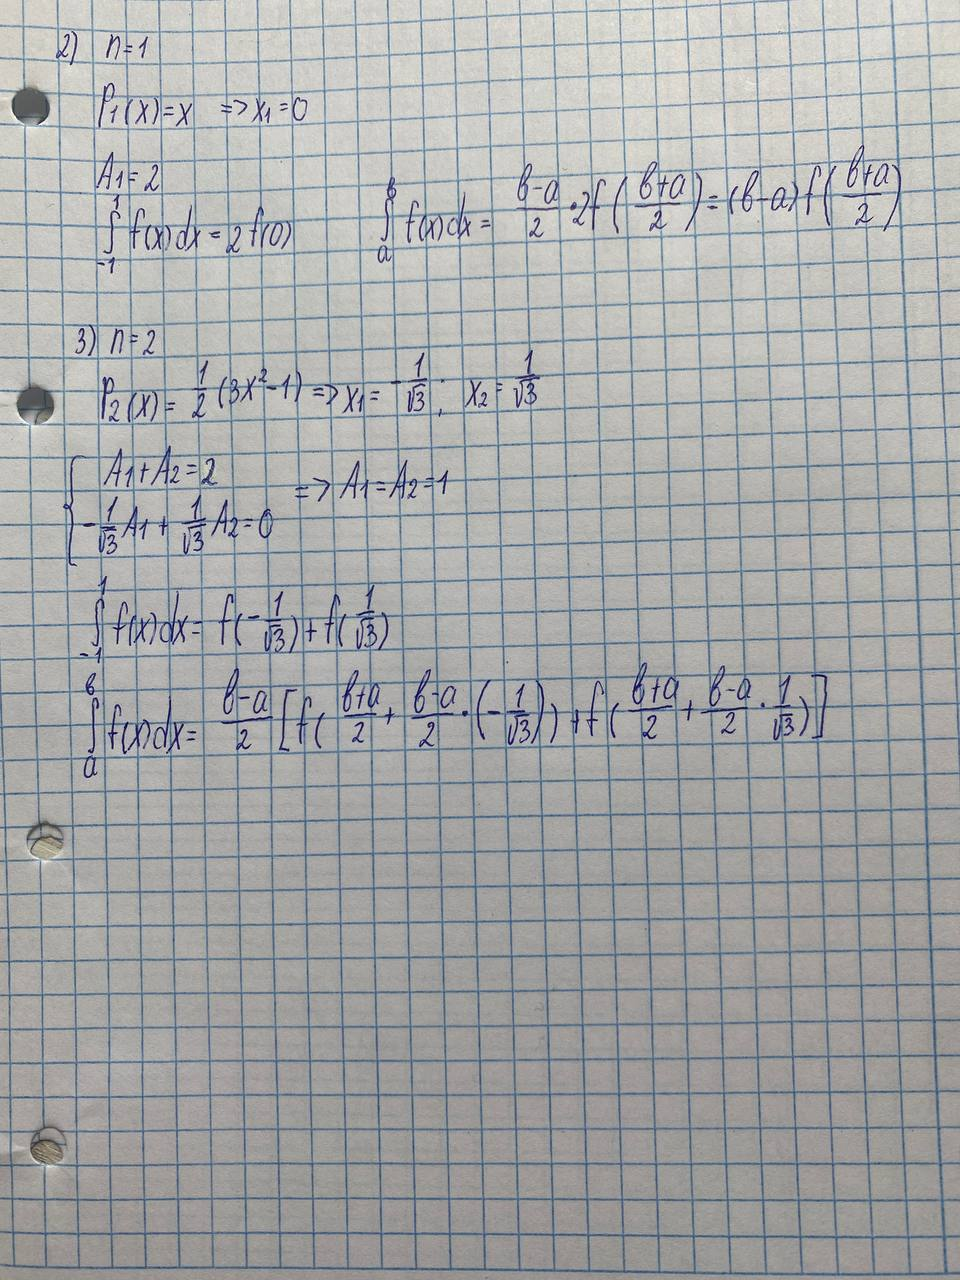 2) n=1
P₁(x)=x => x₁=0
A₁=2
∫₋₁¹ f(x)dx = 2f(0) ∫ₐᵇ f(x)dx = (в-a)/2 · 2f((в+a)/2) = (в-a)f((в+a)/2)
3) n=2
P₂(x)= 1/2 (3x²-1) => x₁= -1/√3; x₂= 1/√3
{ A₁+A₂=2
-1/√3 A₁ + 1/√3 A₂=0 => A₁=A₂=1
∫₋₁¹ f(x)dx= f(-1/√3)+f(1/√3)
∫ₐᵇ f(x)dx= (в-a)/2 [f( (в+a)/2 + (в-a)/2 · (-1/√3)) + f( (в+a)/2 + (в-a)/2 · 1/√3)]